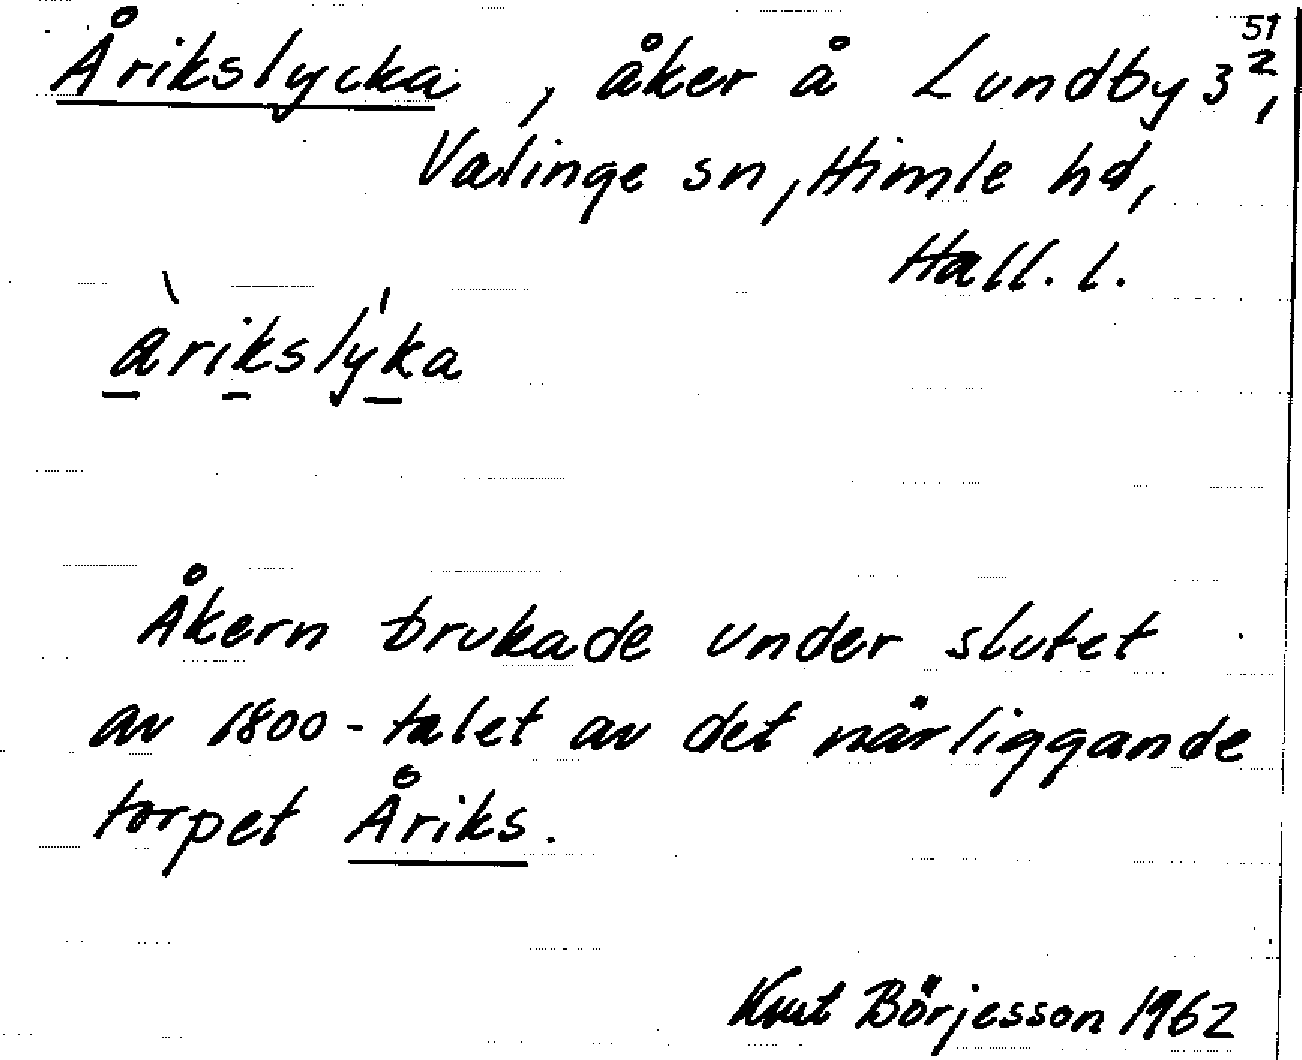 51
Årikslycka, åker å Lundby 3²,
Valinge sn, Himle hd,
Hall. l.
àrikslýka
Åkern brukade under slutet
av 1800-talet av det närliggande
torpet Åriks.
Knut Börjesson 1962